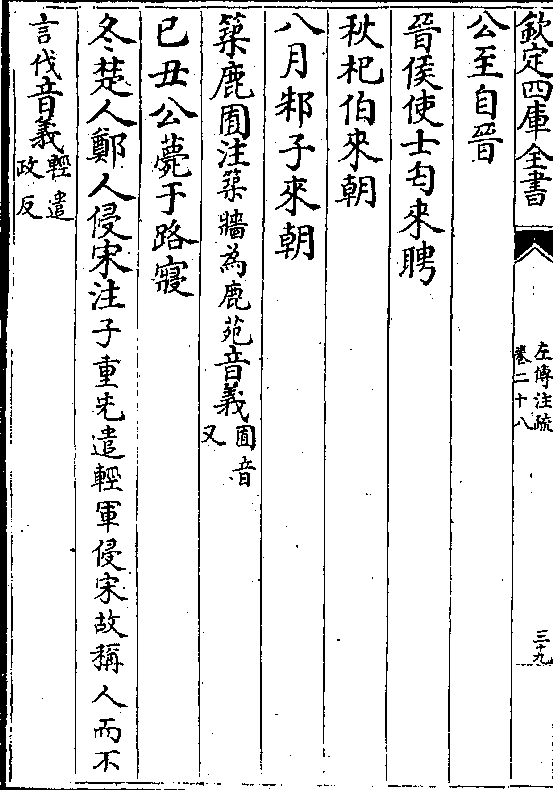 欽定四庫全書
左傳注疏
卷二十八
三十九
公至自晉
晉侯使士匄來聘
秋杞伯來朝
八月邾子來朝
築鹿囿注築牆為鹿苑音義囿音又
已丑公薨于路寢
冬楚人鄭人侵宋注子重先遣輕軍侵宋故稱人而不
言伐音義輕遣政反